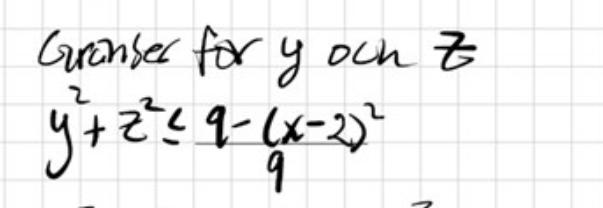 Gränser för y och z
y² + z² ≤ 9-(x-2)²
9